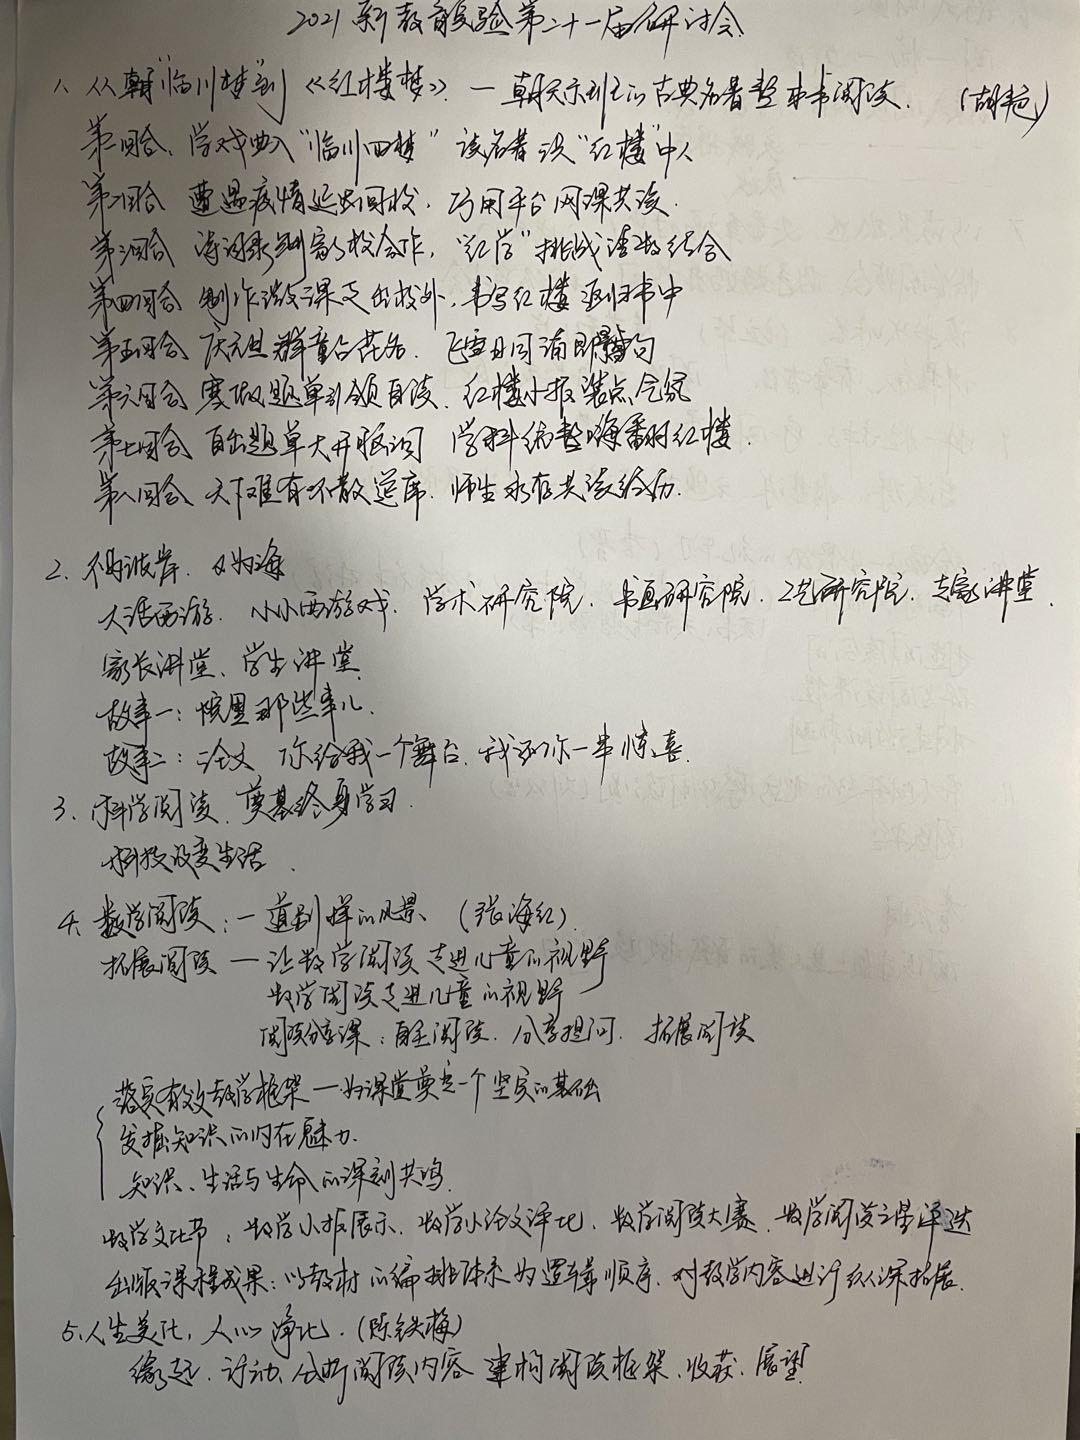 2021 新教育实验第二十一届研讨会
1、从"临川楼"到《红楼梦》. — 古典名著整本书阅读.
第一回合、学戏曲入"临川四梦" 读名著识"红楼"中人
第二回合 遭遇疫情延迟回校. 巧用平台网课共读.
第三回合 诗词录制高校合作, "红学"挑战读做结合
第四回合 制作微课走出校外, 书写红楼返归书中
第五回合 庆元旦群童占花名. 飞雪日同诵即景句
第六回合 寒假题单引领自读. 红楼小报装点气氛
第七回合 自出题单大开眼词 学科统整嗨翻红楼.
第八回合 天下难有不散筵席. 师生永存共读经历.
2、不为彼岸. 只为海
大话西游. 小小西游戏. 学术研究院. 书画研究院. 工艺研究院. 专家讲堂.
家长讲堂、学生讲堂.
故事一: 院里那些事儿.
故事二: 论文 你给我一个舞台. 我还你一串惊喜.
3、科学阅读. 奠基终身学习.
科技改变生活.
4、数学阅读: 一道别样的风景、(张海红)
拓展阅读 — 让数学阅读走进儿童的视野
数学阅读走进儿童的视野
阅读分享课: 自主阅读. 分享提问. 拓展阅读
落实有效教学框架 — 为课堂奠定一个坚实的基础
发掘知识的内在魅力.
知识、生活与生命的深刻共鸣.
数学文化节: 数学小报展示、数学小论文评比、数学阅读大赛、数学阅读之星评选
出版课程成果: 以教材的编排体系为逻辑顺序. 对教学内容进行纵深拓展.
5、人生美化, 人心净化. (陈铁梅)
缘起. 行动、分析阅读内容 建构阅读框架. 收获. 展望